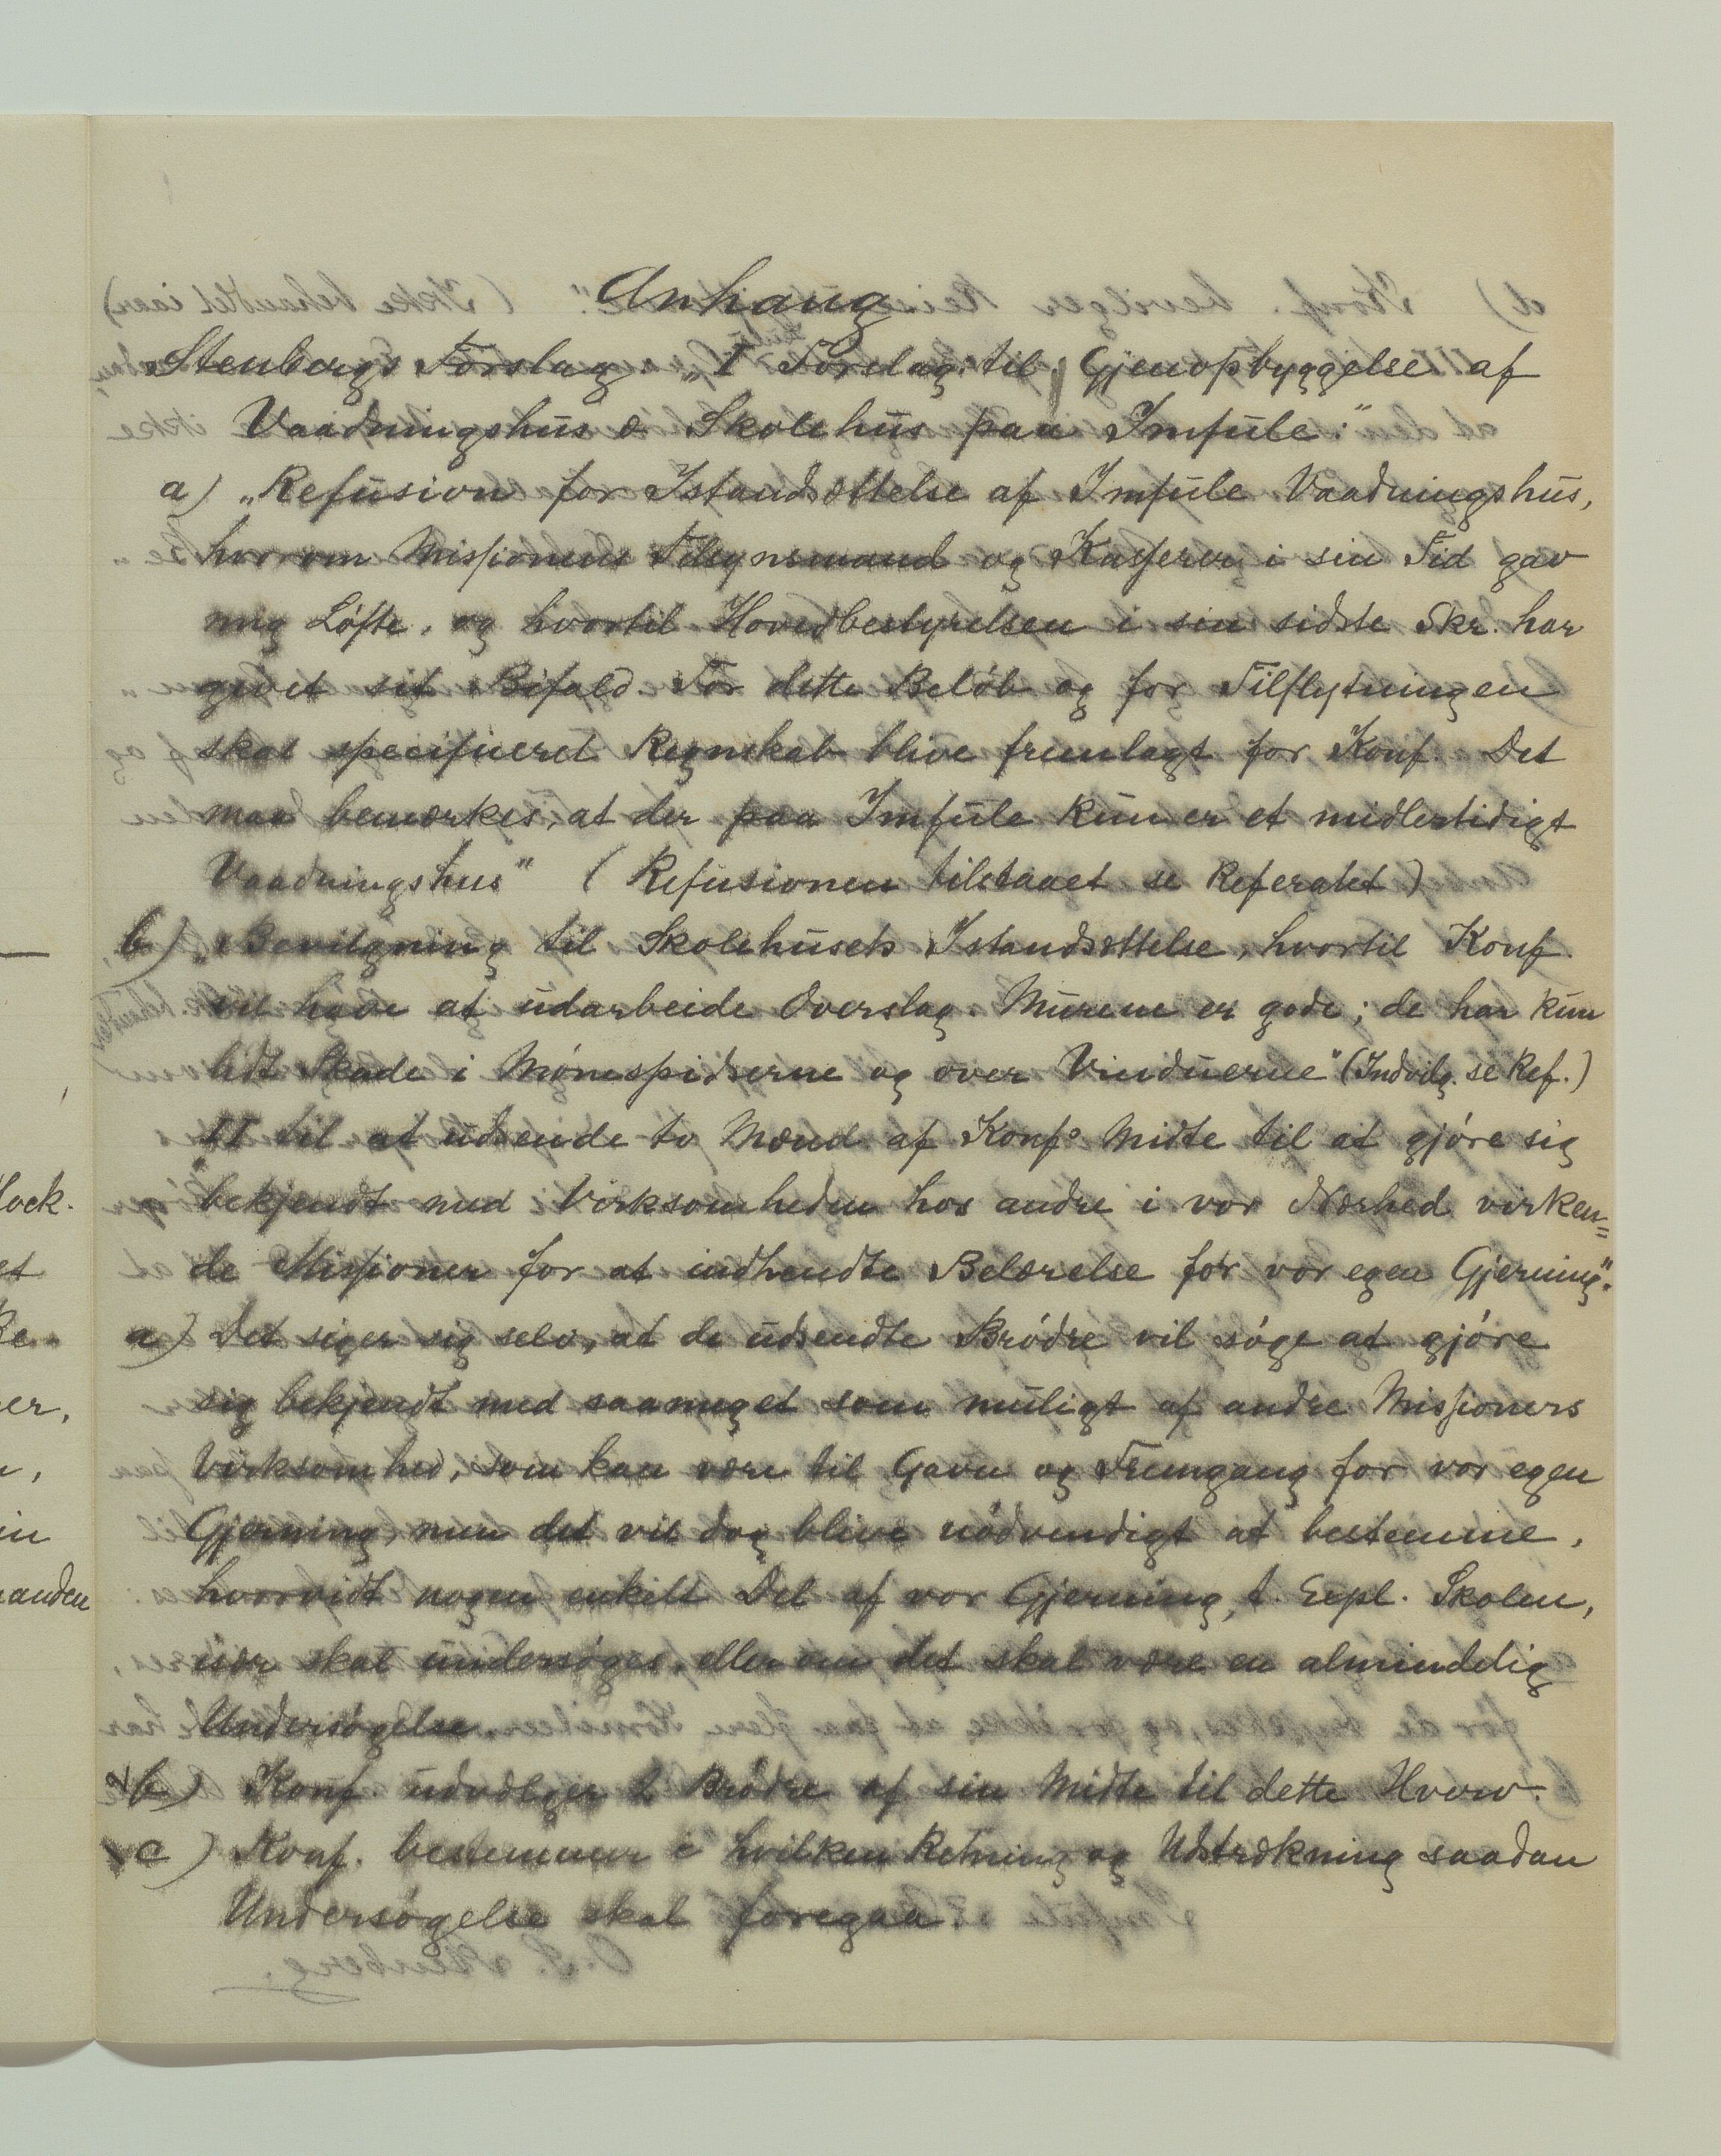 Anhang
Stenbergs Forslag. „I Forslag til Gjenopbyggelse af
Vaadningshus & Skolehus paa Imfule."
a) „Refusion for Istandsættelse af Imfule Vaadningshus,
hvorom Missionens Tilsynsmand og Kasserer i sin Tid gav
mig Löfte, og hvortil Hovedbestyrelsen i sin sidste Skr. har
givet sit Bifald. For dette Belöb og for Tilflytningen
skal specificeret Regnskab blive fremlagt for Konf. Det
maa bemærkes, at der paa Imfule kun er et midlertidigt
Vaadningshus" (Refusionen tilstaaet se Referatet)
b) „Bevilgning til Skolehusets Istandsættelse, hvortil Konf.
vil have at udarbeide Overslag. Murene er gode; de har kun
lidt Skade i Mönespidserne og over Vinduerne" (Indvilg. se Ref.)
„II til at udsende to Mænd af Konfs Midte til at gjöre sig
bekjendt med Virksomheden hos andre i vor Nærhed virken=
de Missioner for at indhendte Belærelse for vor egen Gjerning".
a) Det siger sig selv, at de udsendte Brödre vil söge at gjöre
sig bekjendt med saameget som muligt af andre Missioners
Virksomhed, som kan være til Gavn og Fremgang for vor egen
Gjerning, men det vil dog blive nödvendigt at bestemme,
hvorvidt nogen enkelt Del af vor Gjerning, t. Expl. Skolen,
især skal undersöges, eller om det skal være en almindelig
Undersögelse.
b) Konf. udvælger 2 Brödre af sin Midte til dette Hverv.
c) Konf. bestemmer i hvilken Retning og Udstrækning saadan
Undersögelse skal foregaa.